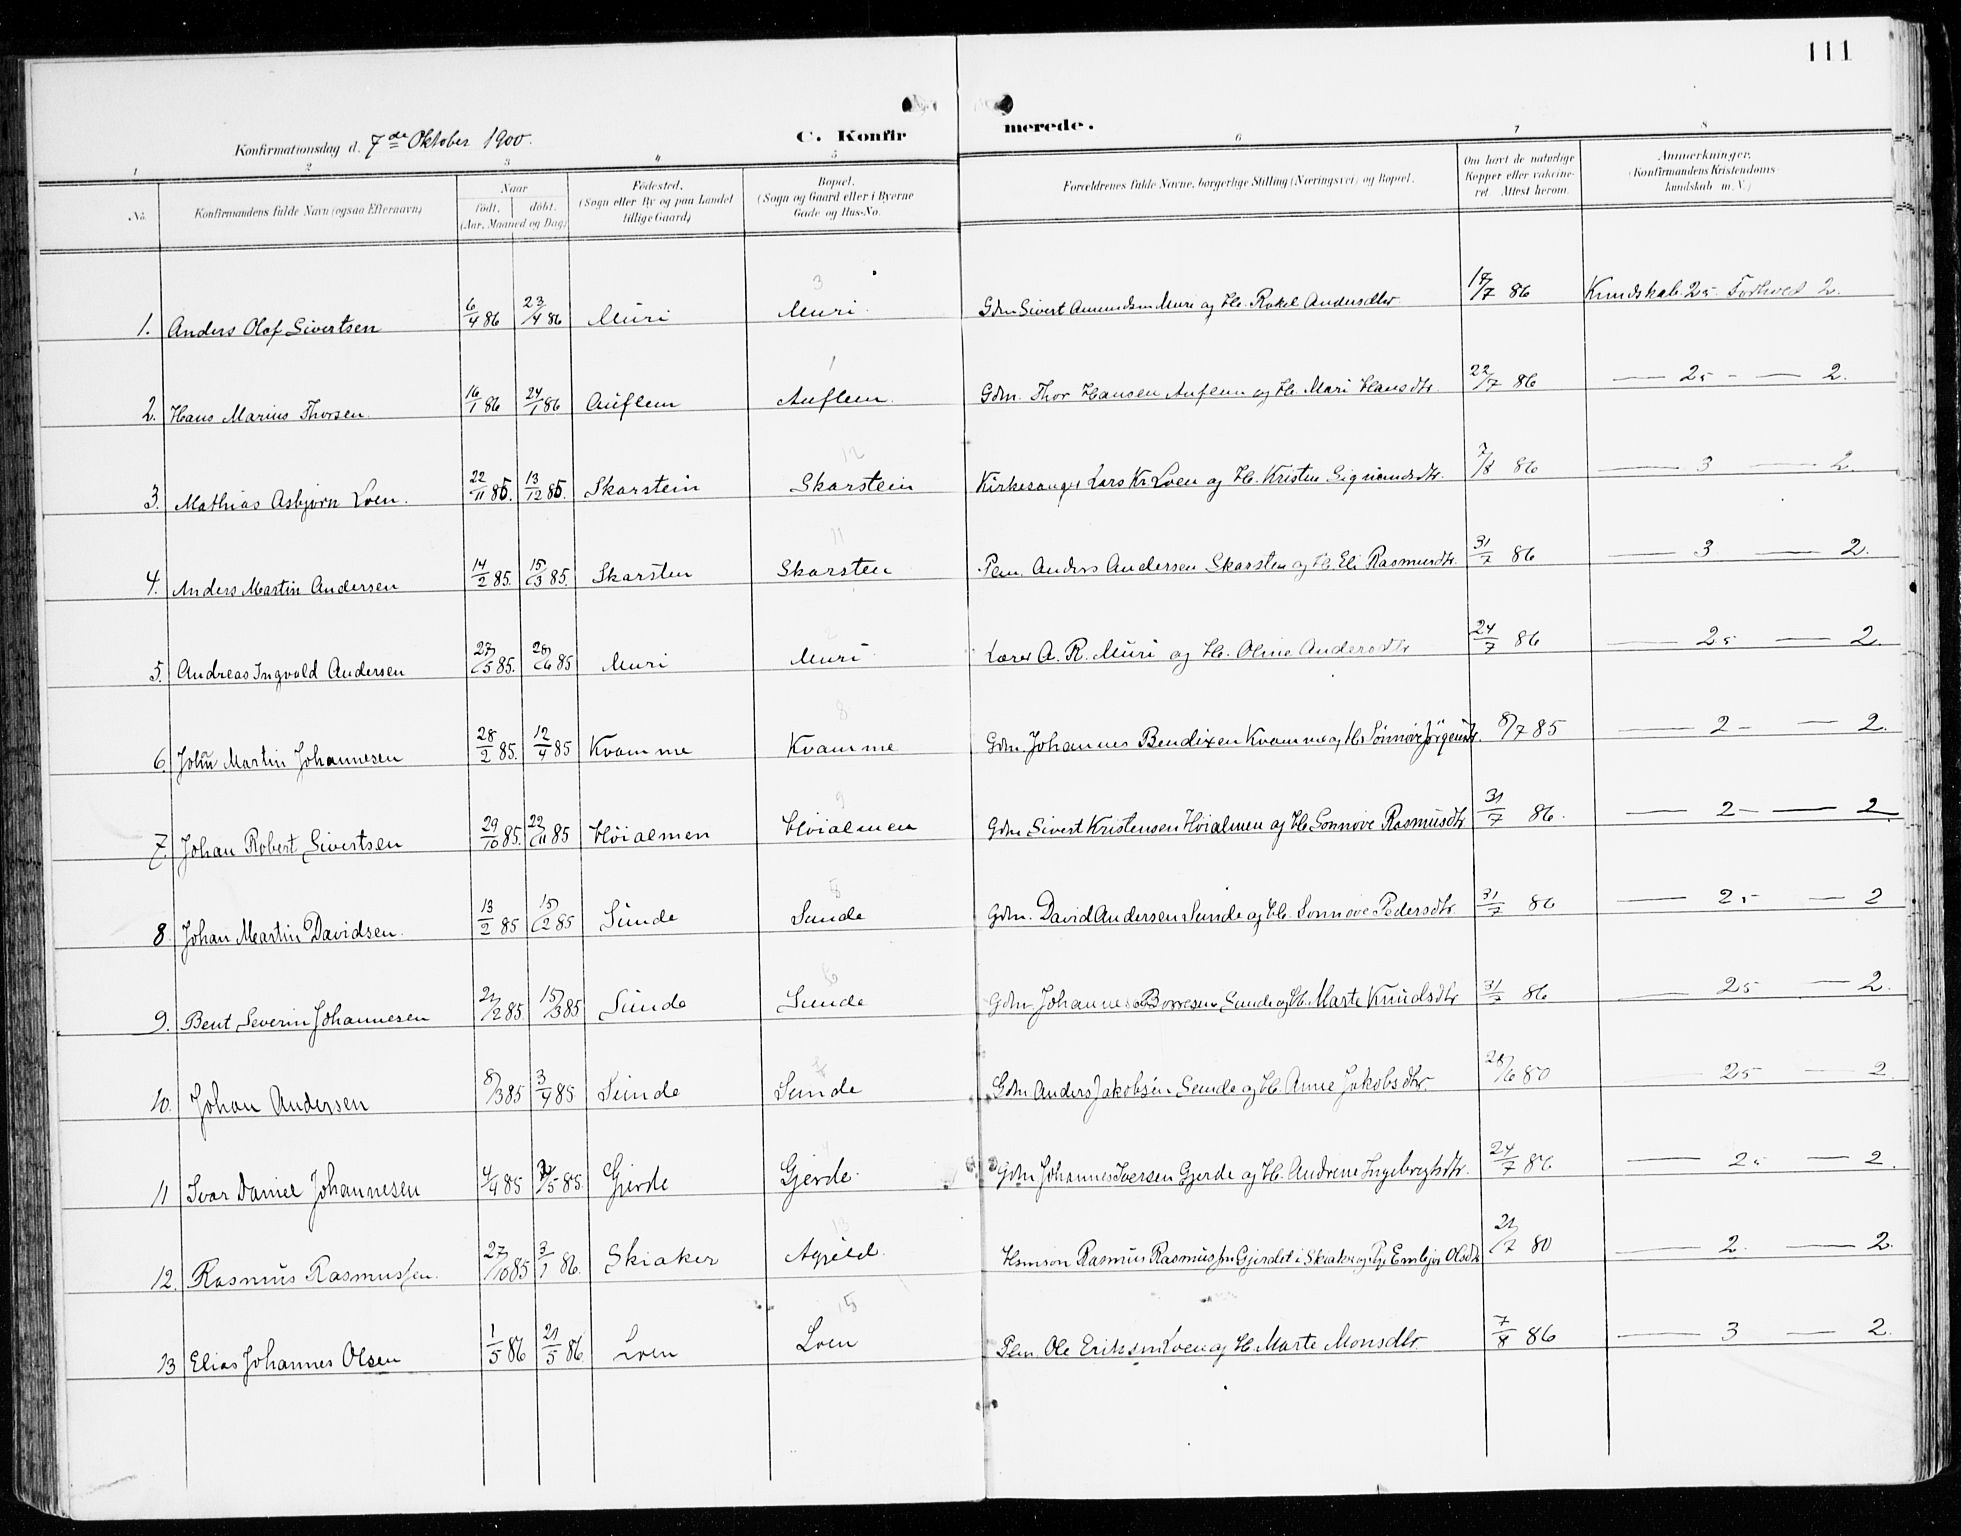 111
Konfirmationsdag d. 7de Oktober 1900.
C. Konfirmerede.
1 2 3 4 5 6 7 8
No. Konfirmandens fulde Navn (ogsaa Efternavn) Naar født. døbt. (Aar, Maaned og Dag) Fødested. (Sogn eller By og paa Landet tillige Gaard) Bopæl. (Sogn og Gaard eller i Byerne Gade og Hus-No. Forældrenes fulde Navne, borgerlige Stilling (Næringsvei) og Bopæl. Om havt de naturlige Kopper eller vakcineret. Attest herom. Anmærkninger. (Konfirmandens Kristendomskundskab m. V.)
3
1. Anders Olaf Sivertsen 6/4 86 23/4 86 Muri Muri Gdm Sivert Amundsen Muri og H. Rakel Andersdtr /7 86 Kundskab 25 Forhold 2.
1
2. Hans Marius Thorsen 16/1 86 24/1 86 Auflem Auflem. Gdm. Thor Hansen Auflem og H. Mari Hansdtr. 22/7 86 — 25 - — 2.
12
3. Mathias Asbjørn Loen. 22/11 85. 13/12 85. Skarstein Skarstein Kirkesanger Lars Kr Loen og H. Kristen Sigmundsdtr. 7/8 86 — 3 — 2.
11
4. Anders Martin Andersen 14/2 85. 15/3 85. Skarsten Skarsten Pem. Anders Andersen Skarsten og H. Eli Rasmusdtr. 31/7 86 — 3 — 2.
2
5. Andreas Ingvald Andersen 27/5 85. 28/6 85 Muri Muri Lærer A. R. Muri og H. Oline Andersdtr 24/7 86 — 25 — 2.
8
6. Johan Martin Johannesen 28/2 85. 12/4 85 Kvamme Kvamme Gdm. Johannes Bendixen Kvamme og H. Sønnøve Jørgensdtr. 8/7 85 — 2 - — 2.
9
7. Johan Robert Sivertsen 29/10 85. 22/11 85 Høialmen Høialmen Gdm Sivert Kristensen Høialmen og H. Sønnøve Rasmusdtr 31/7 86. — 2 - — 2
5
8. Johan Martin Davidsen. 13/2 85 15/2 85 Sunde Sunde Gdm. David Andersen Sunde og H. Sønnøve Pedersdtr. 31/7 86 — 25 — 2
6
9. Bent Severin Johannesen 21/2 85 15/3 85 Sunde Sunde Gdm. Johannes Børresen Sunde og H. Marte Knudsdtr 31/7 86 — 25 — 2.
7
10. Johan Andersen 8/3 85 3/4 85 Sunde Sunde Gdm Anders Jakobsen Sunde og H. Anne Jakobsdtr 28/6 80 — 25 — 2.
4
11 Ivar Daniel Johannesen 4/4 85 /5 85 Gjerde Gjerde. Gdm Johannes Iversen Gjerde og H. Andrine Ingebregtsdtr. 24/7 86 — 25 — 2.
13
12. Rasmus Rasmussen. 27/10 85 3/1 86. Skiaker Hsmsøn Rasmus Rasmussen Gjerdet i Skiaker og Pg. Olsdtr 21/7 80 — 2. — 2.
15
13 Elias Johannes Olsen 1/5 86 21/5 86. Loen Loen Pem. Ole Eriksen Loen og H. Marte Monsdtr. 7/8 86 — 3 — 2.